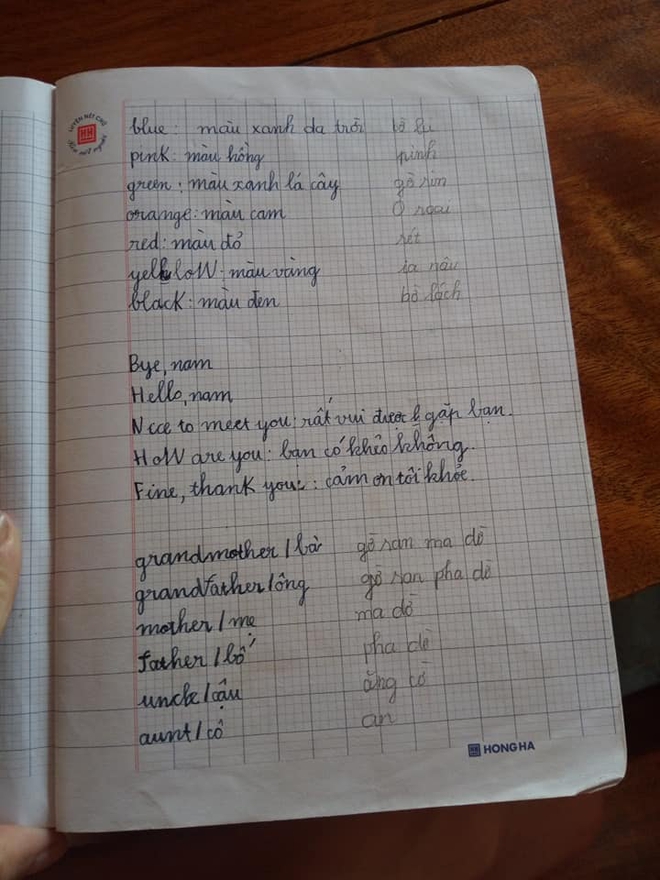 LUYỆN NÉT CHỮ
blue: màu xanh da trời bờ lu
pink: màu hồng pinh
green: màu xanh lá cây gờ rin
orange: màu cam Ô ragi
red: màu đỏ rét
yellow: màu vàng ia râu
black: màu đen bờ lách
Bye, nam
Hello, nam
Nice to meet you: rất vui được gặp bạn.
HoW are you: bạn có khỏe không.
Fine, thank you: cảm ơn tôi khỏe.
grandmother / bà gờ ran ma dờ
grandfather / ông gờ ran pha dờ
mother / mẹ ma dờ
father / bố pha dờ
uncle / cậu ăng cồ
aunt / cô an
HONG HA